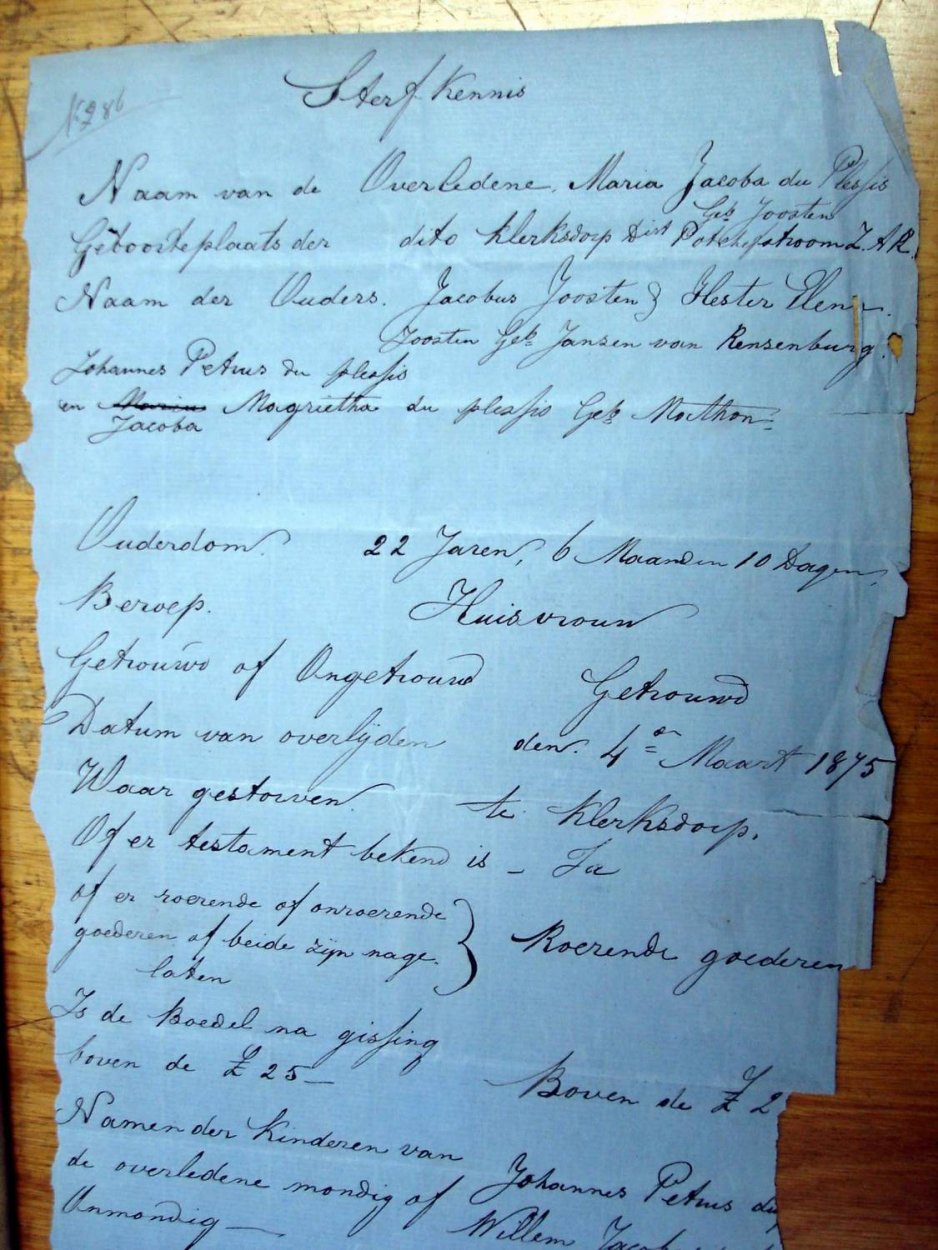 No 286
Sterf Kennis
Naam van de Overledene. Maria Jacoba du Plessis
Geb Joosten
Geboorteplaats der dito Klerksdorp Dist Potchefstroom Z. A R.
Naam der Ouders. Jacobus Joosten & Hester Elen
Joosten Geb Jansen van Rensenburg.
Johannes Petrus du plessis
en Maria Magrietha du plessis Geb
Jacoba
Ouderdom. 22 Jaren, 6 Maanden 10 Dagen,
Beroep. Huisvrouw
Getrouwd of Ongetrouwd Getrouwd
Datum van overlijden den 4en Maart 1875
Waar gestorven. te Klerksdorp.
Of er testament bekend is - Ja
of er roerende of onroerende
goederen of beide zijn nage. } Roerende goederen
laten
Is de Boedel na gissing
boven de £ 25 - Boven de £ 2
Namen der Kinderen van
de overledene mondig of Johannes Petrus du
Onmondig - Willem Jacob